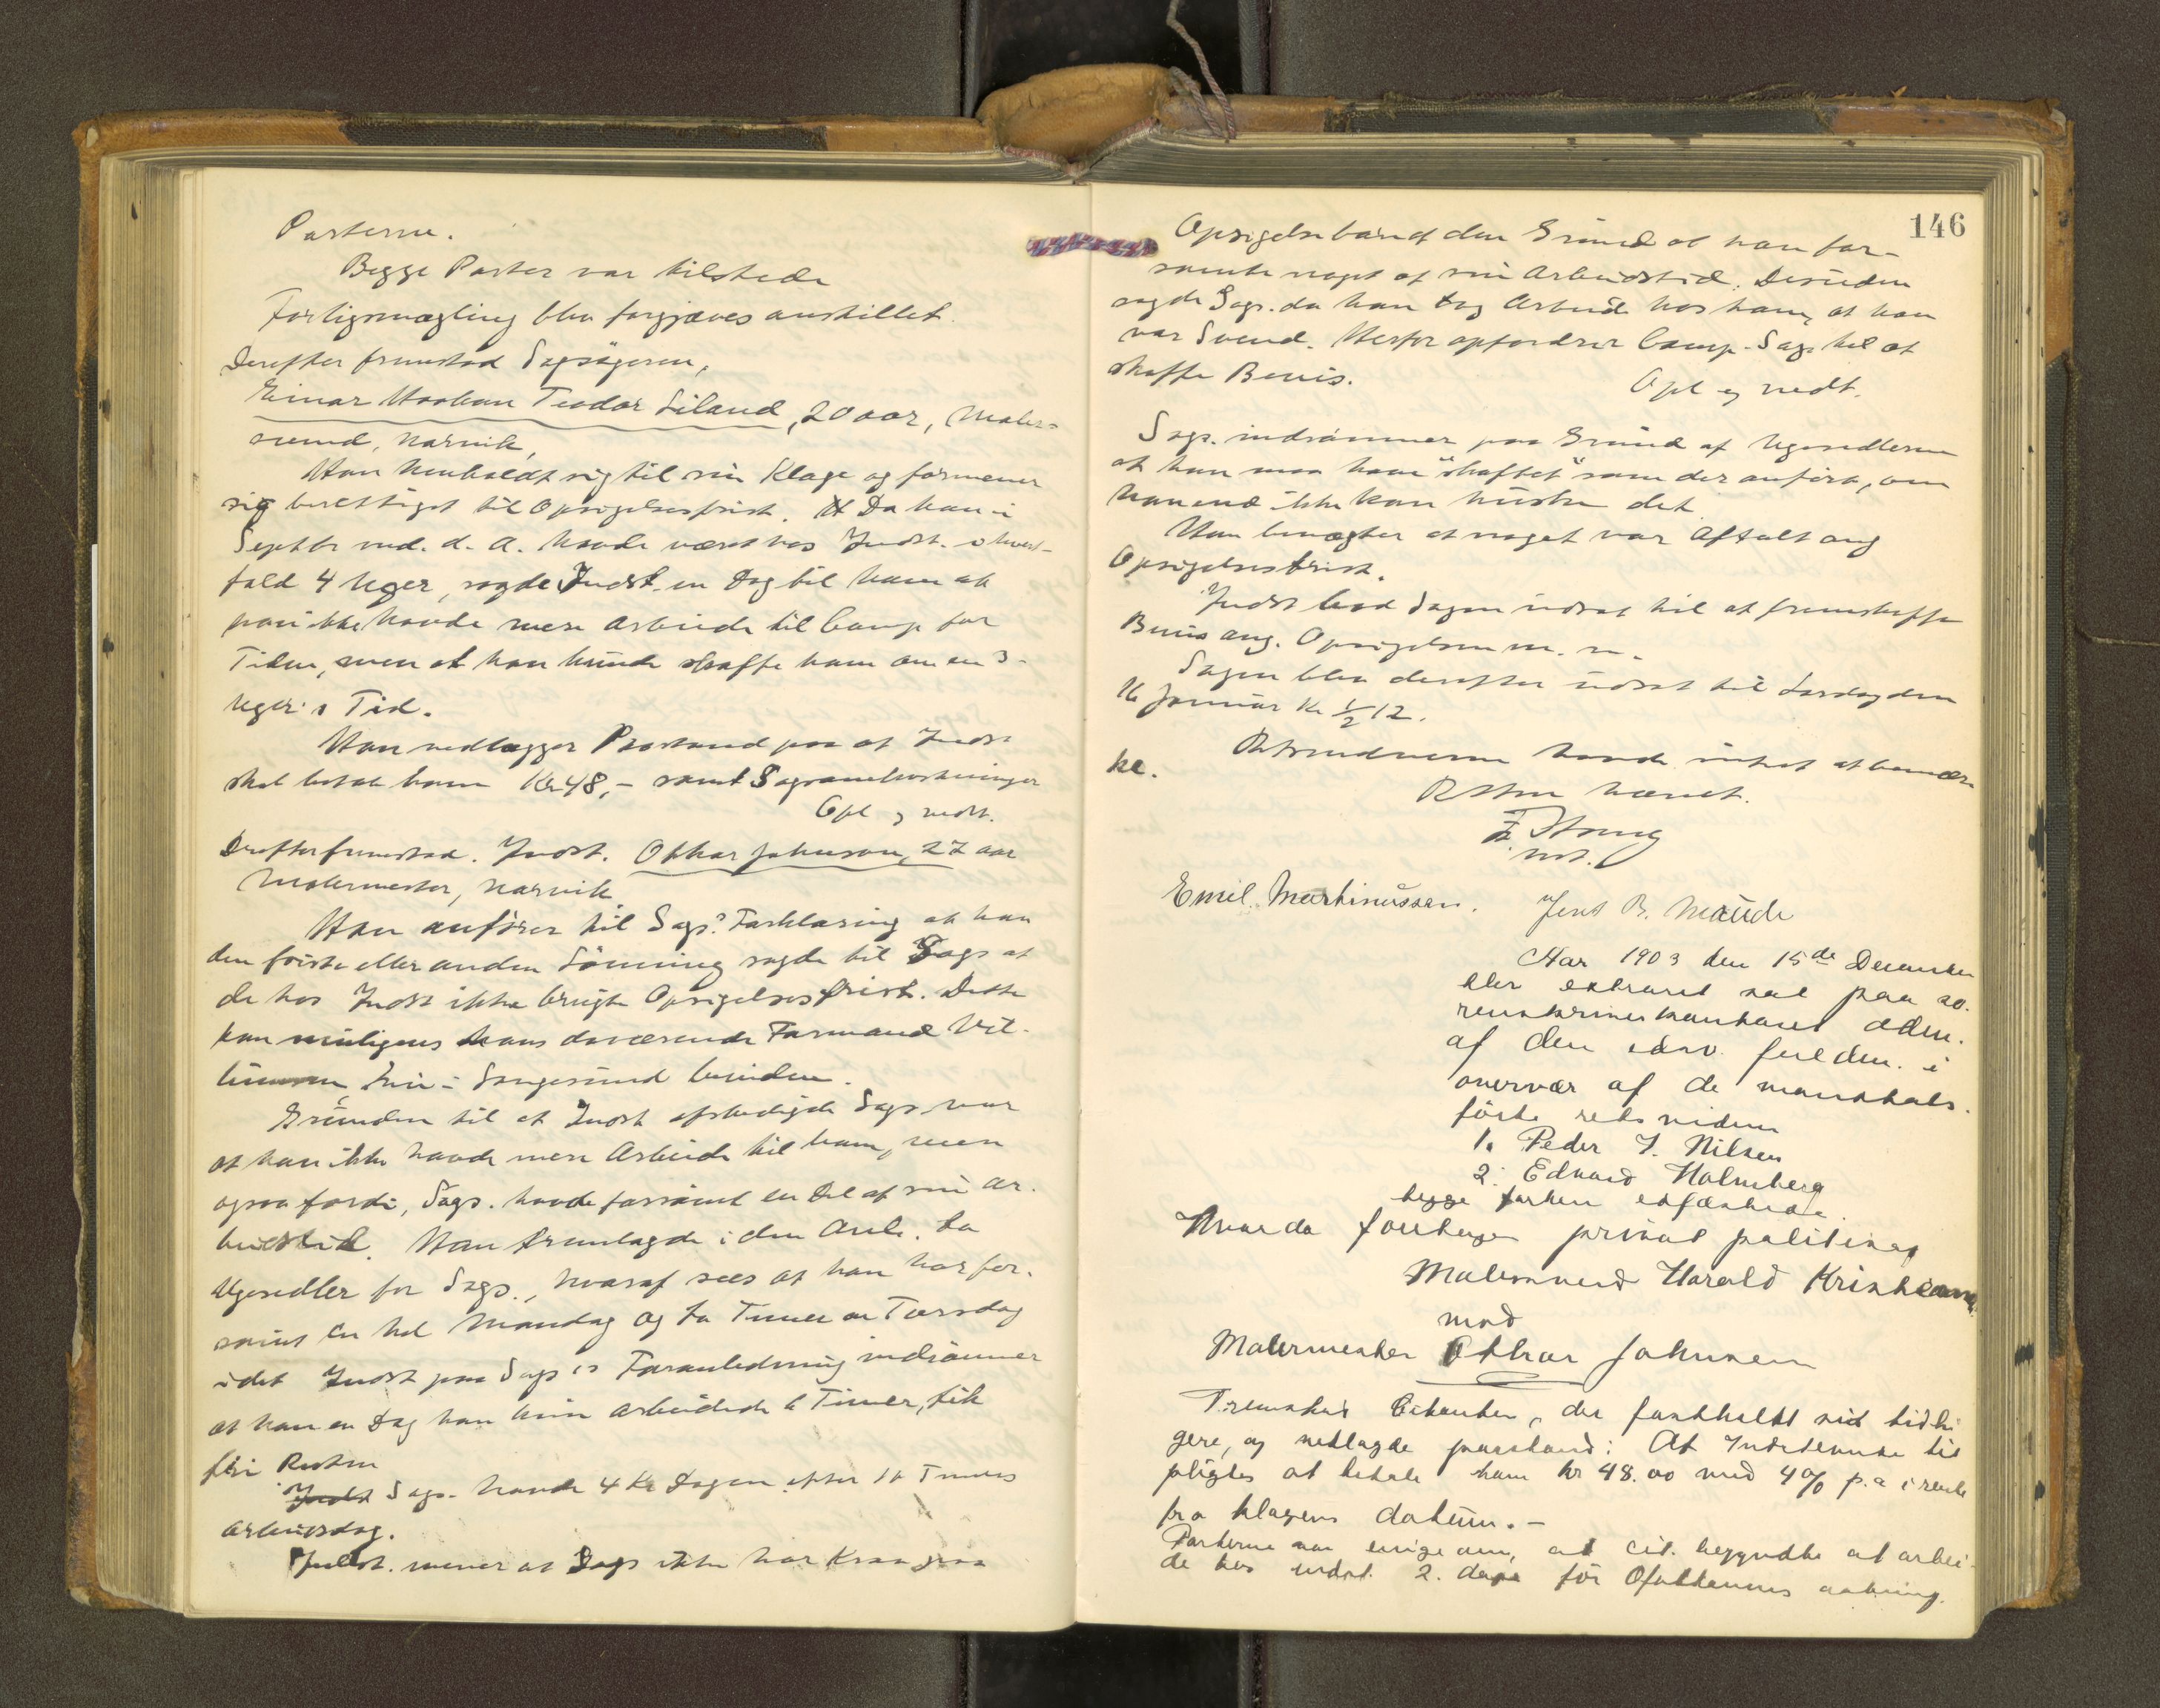 Parterne.
Begge Parter var tilstede
Forligsmægling blev forgjæves anstillet.
Derefter fremstod Sagsøgeren,
Einar Haakon Teodor Siland, 20 aar, Maler-
svend, Narvik,
Han henholdt sig til sin Klage og formener
sig berettiget til Opsigelsesfrist. Da han i
Septbr md. d. A. havde været hos Indst. i hvert-
fald 4 Uger, sagde Indst. en Dag til ham at
han ikke havde mere Arbeide til Comp for
Tiden, men at han kunde skaffe ham om en 3-
Uger's Tid.
Han nedlægger Paastand paa at Indst
skal betale ham Kr 48,- samt Sagsomkostninger
Opl og vedt.
Derefter fremstod. Indst. Othar Johnson, 27 aar
Malermester, Narvik.
Han anfører til Sags's Forklaring at han
den første eller anden Lønning sagde til Sags at
de hos Indst ikke brugte Opsigelsesfrist. Dette
kan muligens hans daværende Formand
nu i Langesund bevidne.
Grunden til at Indst afskedigede Sags var
at han ikke havde mere Arbeide til ham, men
ogsaa fordi, Sags. havde forsømt en Del af sin Ar-
beidstid. Han fremlagde i den Anl. to
Ugesedler for Sags., hvoraf sees at han har for-
sømt en hel Mandag og to Timer en Torsdag
idet Indst paa Sags's Foranledning indrømmer
at han en Dag han kun arbeidede 6 Timer, fik
fri Resten
Indst Sags. havde 4 Kr Dagen efter 10 Timers
Arbeidsdag.
Indst. mener at Sags ikke har Krav paa
146
Opsigelse paa den Grund at han for-
sømte noget af sin Arbeidstid. Desuden
sagde Sags. da han tog Arbeide hos ham, at han
var Svend. Herfor opfordrer Comp. Sags til at
skaffe Bevis.
Opl og vedt.
Sags. indrømmer paa Grund af Ugesedlerne
at han maa have "skoftet" som der anført, om
han end ikke kan huske det.
Han benægter at noget var aftalt ang
Opsigelsesfrist.
Indst bad Sagen udsat til at fremskaffe
Bevis ang. Opsigelsen m. v.
Sagen blev derefter udsat til Lørdag den
16 Januar Kl ½ 12.
Retsvidnerne havde intet at bemær-
ke.
Retten hævet.
Emil Martinussen. Jens B. Maude
Aar 1903 den 15de December
blev extraret sat paa so-
renskriverkontoret
af den edsv. fuldm. i
overvær af de mandtals-
førte retsvidner
1. Peder J. Nilsen
2. Edvard Holmberg
begge forhen edfæstede.
Hvor da foretages privat politisag
Malersvend Harald Kristiansen
mod
Malermester Othar Johnsen
Fremstod Citanten, der fastholdt sit tidli-
gere, og nedlagde paastand: At Indstevnte til-
pligtes at betale ham kr 48.00 med 4% p.a i rente
fra klagens datum.-
Parterne var enige om, at cit. begyndte at arbei-
de hos indst. 2. dage før Ofotbanens aabning.